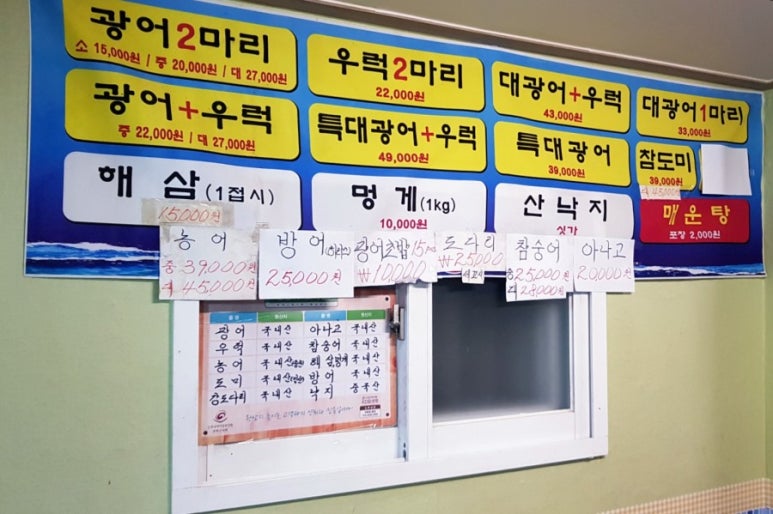 광어2마리
소 15,000원 / 중 20,000원 / 대 27,000원
우럭2마리
22,000원
대광어+우럭
43,000원
대광어1마리)
33,000원
광어+우럭
중 22,000원 / 대 27,000원
특대광어+우럭
49,000원
특대광어
39,000원
참도미
39,000원
45,000원
해삼(1접시)
15,000원
멍게(1kg)
10,000원
산낙지
싯가
매운탕
포장 2,000원
농어
중 39,000원
대 45,000원
방어
25,000원
광어초밥15
₩10,000
도다리
₩25,000
참숭어
중 25,000원
대 28,000원
아나고
20,000원
광어 국내산 아나고 국내산
우럭 국내산 참숭어 국내산
농어 국내산 해삼,멍게 국내산
도미 국내산 방어 국내산
국내산 낙지 중국산